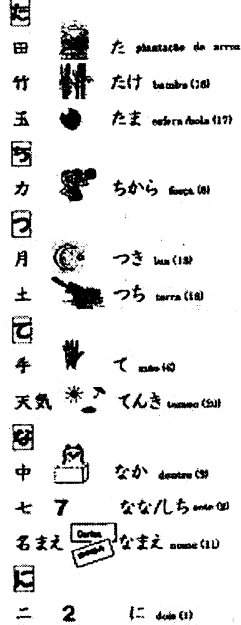 た
田 た plantação de arroz
竹 たけ bambu (16)
玉 たま esfera/bola (17)
ち
力 ちから força (8)
つ
月 つき lua (13)
土 つち terra (18)
て
手 て mão (6)
天気 てんき tempo (20)
な
中 なか dentro (3)
七 7 なな/しち sete (2)
名まえ Carlos なまえ nome (11)
に
二 2 に dois (1)